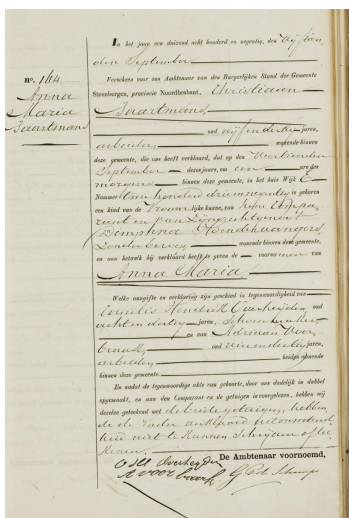 In het jaar een duizend acht honderd en negentig, den vijftien
den September
No. 164
Anna
Maria
Baartmans
Verscheen voor ons Ambtenaar van den Burgerlijken Stand der Gemeente
Steenbergen, provincie Noordbrabant, Christiaan
Baartmans
oud vijfendertig jaren,
arbeider, wonende binnen
deze gemeente, die ons heeft verklaard, dat op den veertienden
September dezes jaars, ten een ure des
morgens binnen deze gemeente, in het huis Wijk E
Nommer honderd drieennegentig is geboren
een kind van de vrouwelijke kunne, van hem Compa
rant en van zijne echtgenoote
Dimphena
zonder beroep wonende binnen deze gemeente,
en aan hetwelk hij verklaard heeft te geven de voornamen van
Anna Maria
Welke aangifte en verklaring zijn geschied in tegenwoordigheid van
Cornelis Hendrik Overheijden oud
achtendertig jaren, schoenmaker
en van Adriaan Voor
braak oud vierendertig jaren,
arbeider, beiden wonende
binnen deze gemeente
En nadat de tegenwoordige akte van geboorte, door ons dadelijk in dubbel
opgemaakt, en aan den Comparant en de getuigen is voorgelezen, hebben wij
dezelve geteekend met de beide getuigen, hebben
de de vader
niet te kunnen schrijven of tee
kenen.
De Ambtenaar voornoemd,
CH Overheijden
A voorbraak